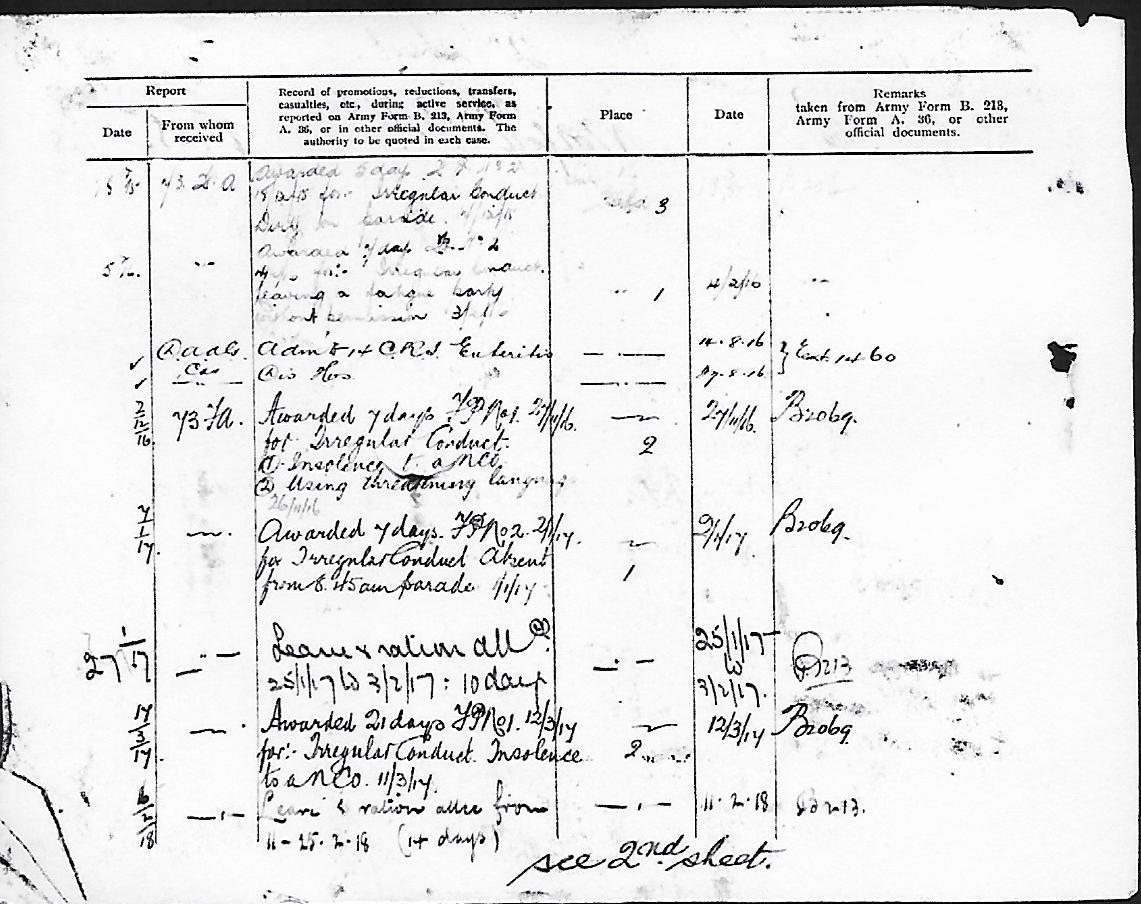 Report
Record of promotions, reductions, transfers,
casualties, etc., during active service, as
reported on Army Form B. 213, Army Form
A. 36, or in other official documents. The
authority to be quoted in each case.
Place
Date
Remarks
taken from Army Form B. 213,
Army Form A. 36, or other
official documents.
Date
From whom
received
Awarded 5 days
for Irregular Conduct
Dirty on parade.
3
Awarded 7 days No 2
for:- Irregular Conduct.
leaving a fatigue party
without permission
1
4/2/16
Adm to 14 C.R.S. Enteritis
14.8.16
Dis Hos
17.8.16
2/12/16
73 FA.
Awarded 7 days FP No 1. 27/11/16.
27/11/16.
B2069.
for Irregular Conduct.
2
(1) Insolence to a NCO.
(2) Using threatening language
26/11/16
7/1/17.
Awarded 7 days. FP No 2. 2/1/17.
2/1/17.
B2069.
for Irregular Conduct Absent
1
from 8.45am parade 1/1/17
27/1/17
Leave & ration all
25/1/17
to
3/2/17.
B213
25/1/17 to 3/2/17: 10 days
17/3/17.
Awarded 21 days FP No 1. 12/3/17
12/3/17
B2069
for:- Irregular Conduct. Insolence
2
to a NCO. 11/3/17.
18
Leave & ration allce from
11.2.18
B213.
11-25.2.18 (14 days)
see 2nd sheet.